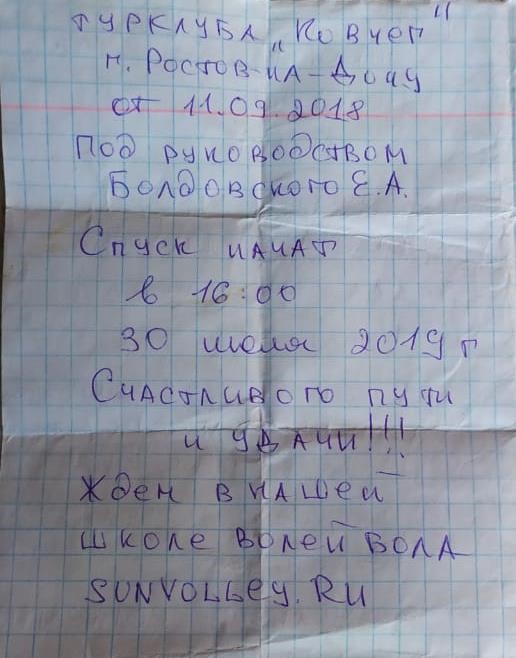 турклуба „Ковчег"
г. Ростов-на-Дону
от 11.09.2018
Под руководством
Болдовского Е.А.
Спуск начат
в 16:00
30 июля 2019 г
Счастливого пути
и удачи!!!
Ждем в нашей
школе волейбола
SUNVOLLEY.RU